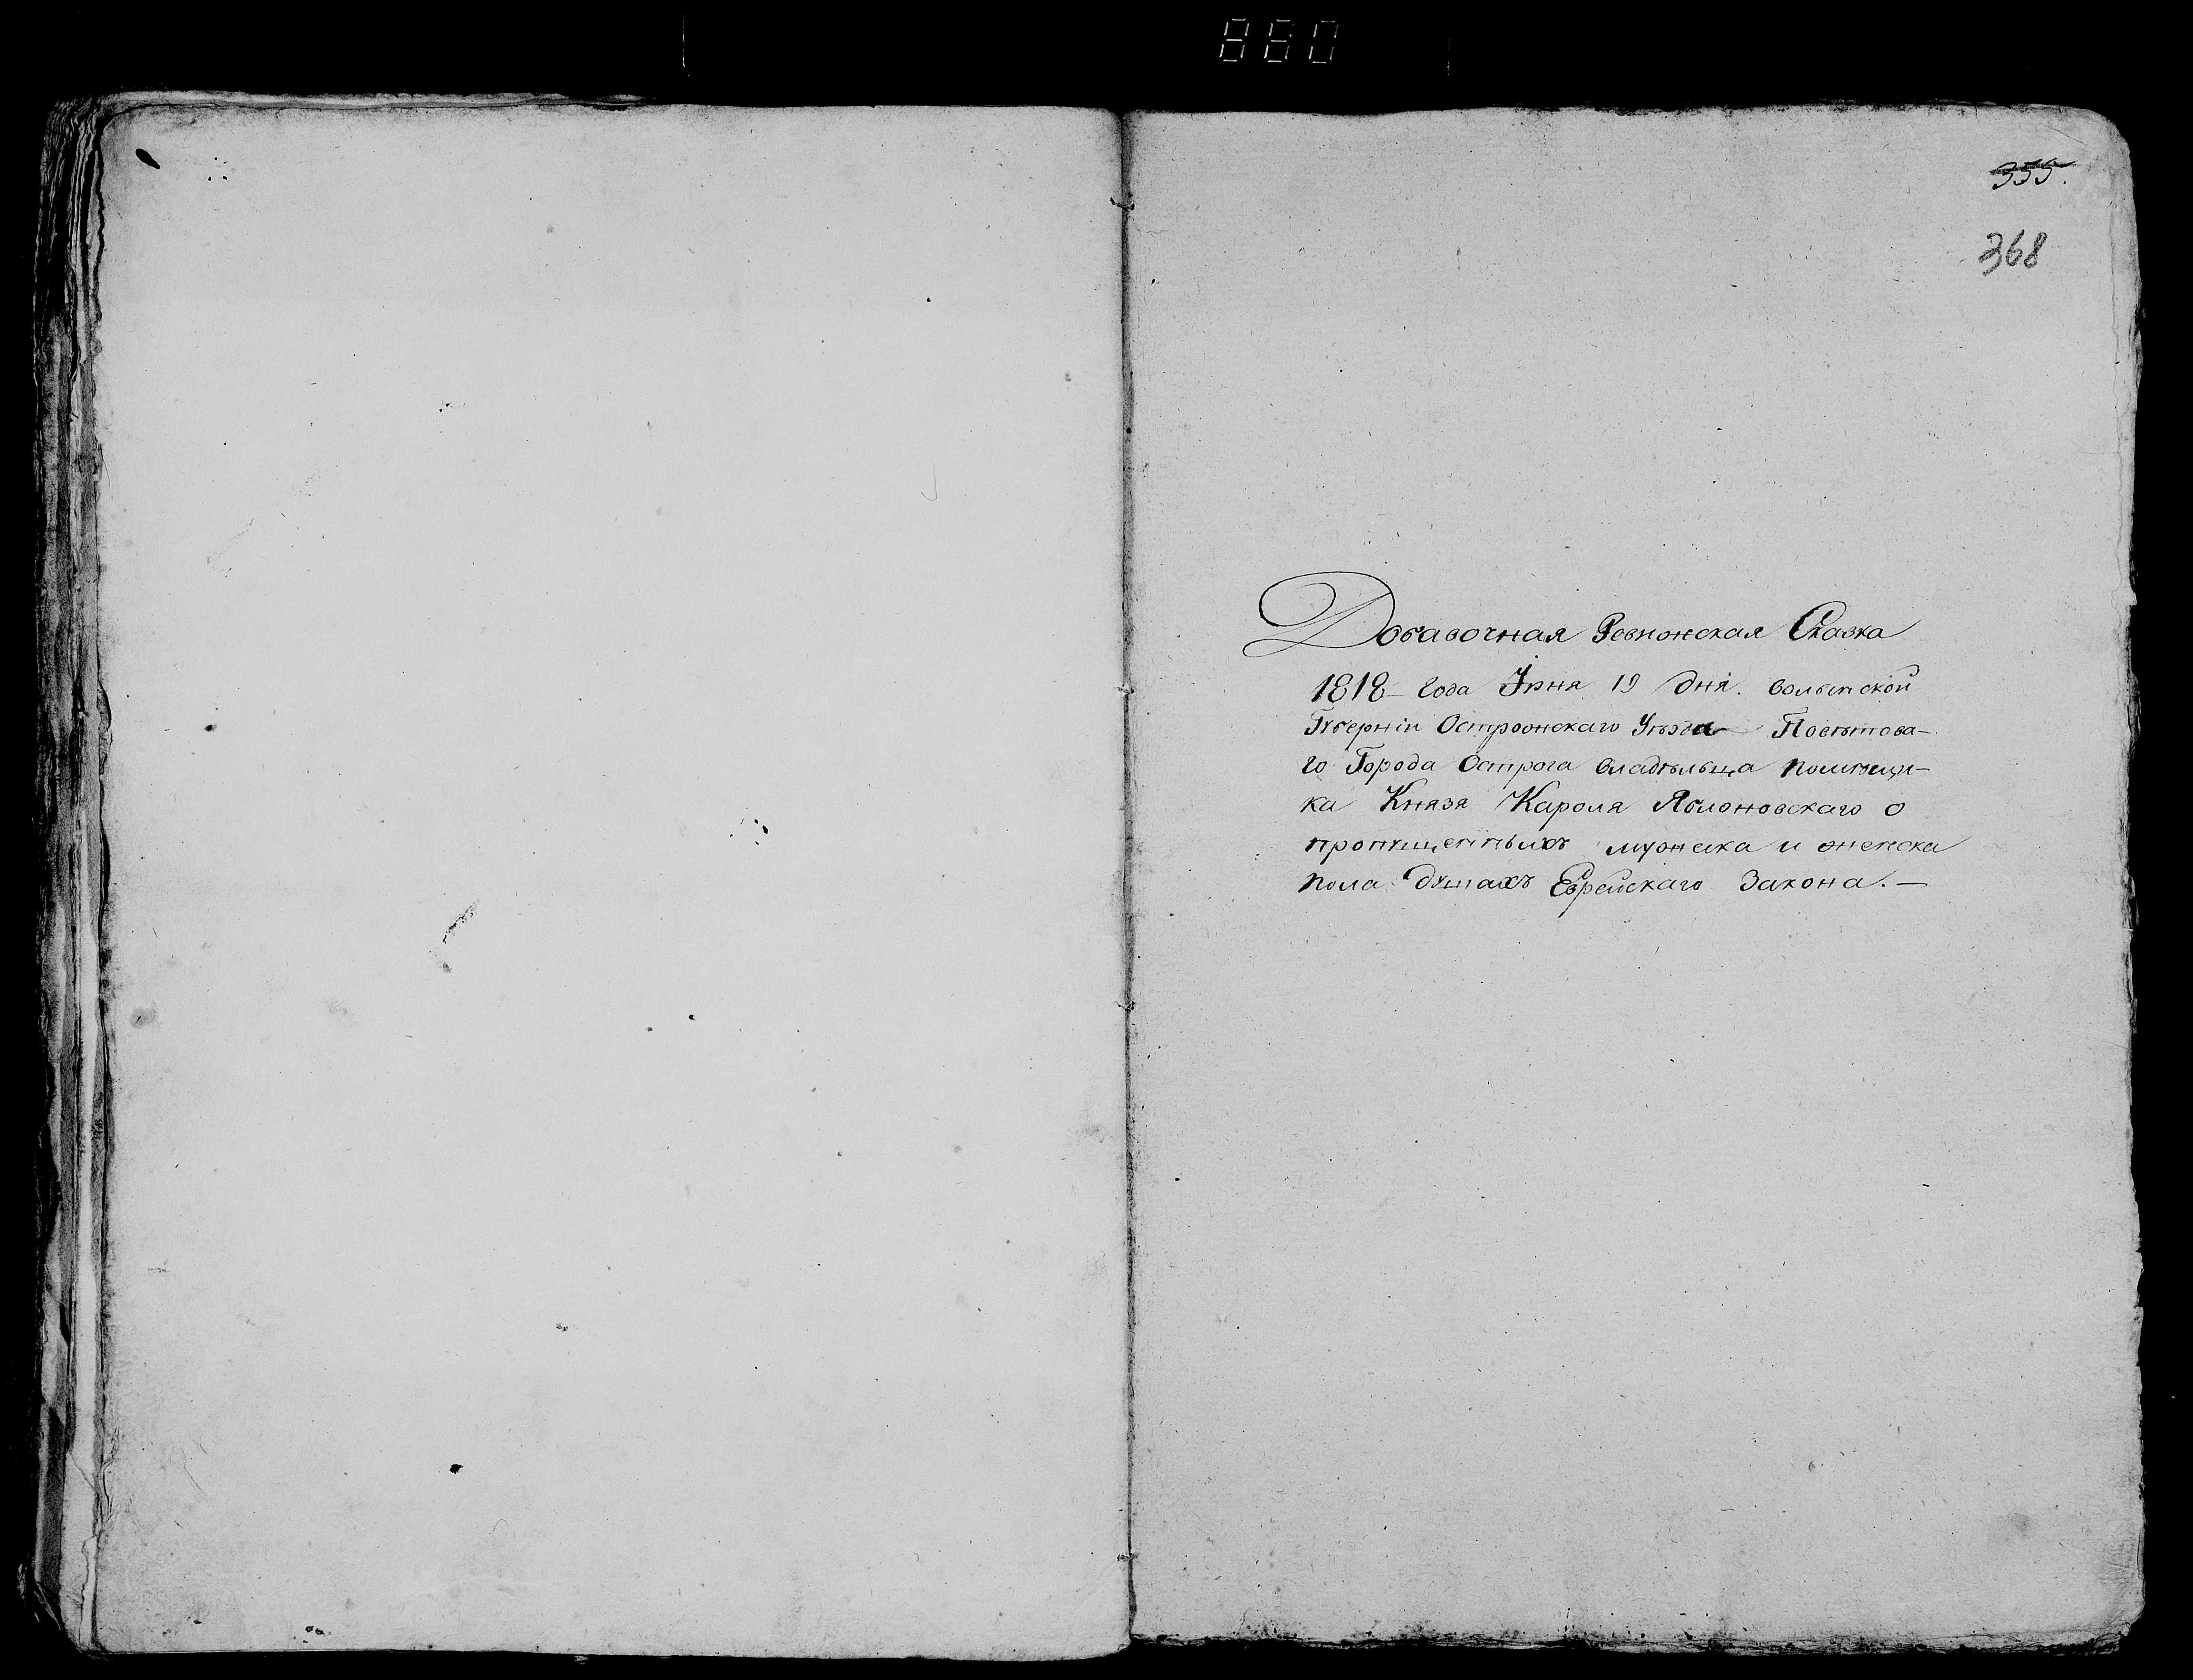 880
355.
368
Добавочная Ревиожская Сказка
1818 года Іюня 19 дня. Волынской
Губерніи Острожскаго Уѣзда Повѣтова-
го Города Острога владѣльца помѣщи-
ка Князя Кароля Яблоновскаго о
пропущенныхъ мужеска и женска
пола душахъ Еврейскаго Закона. —